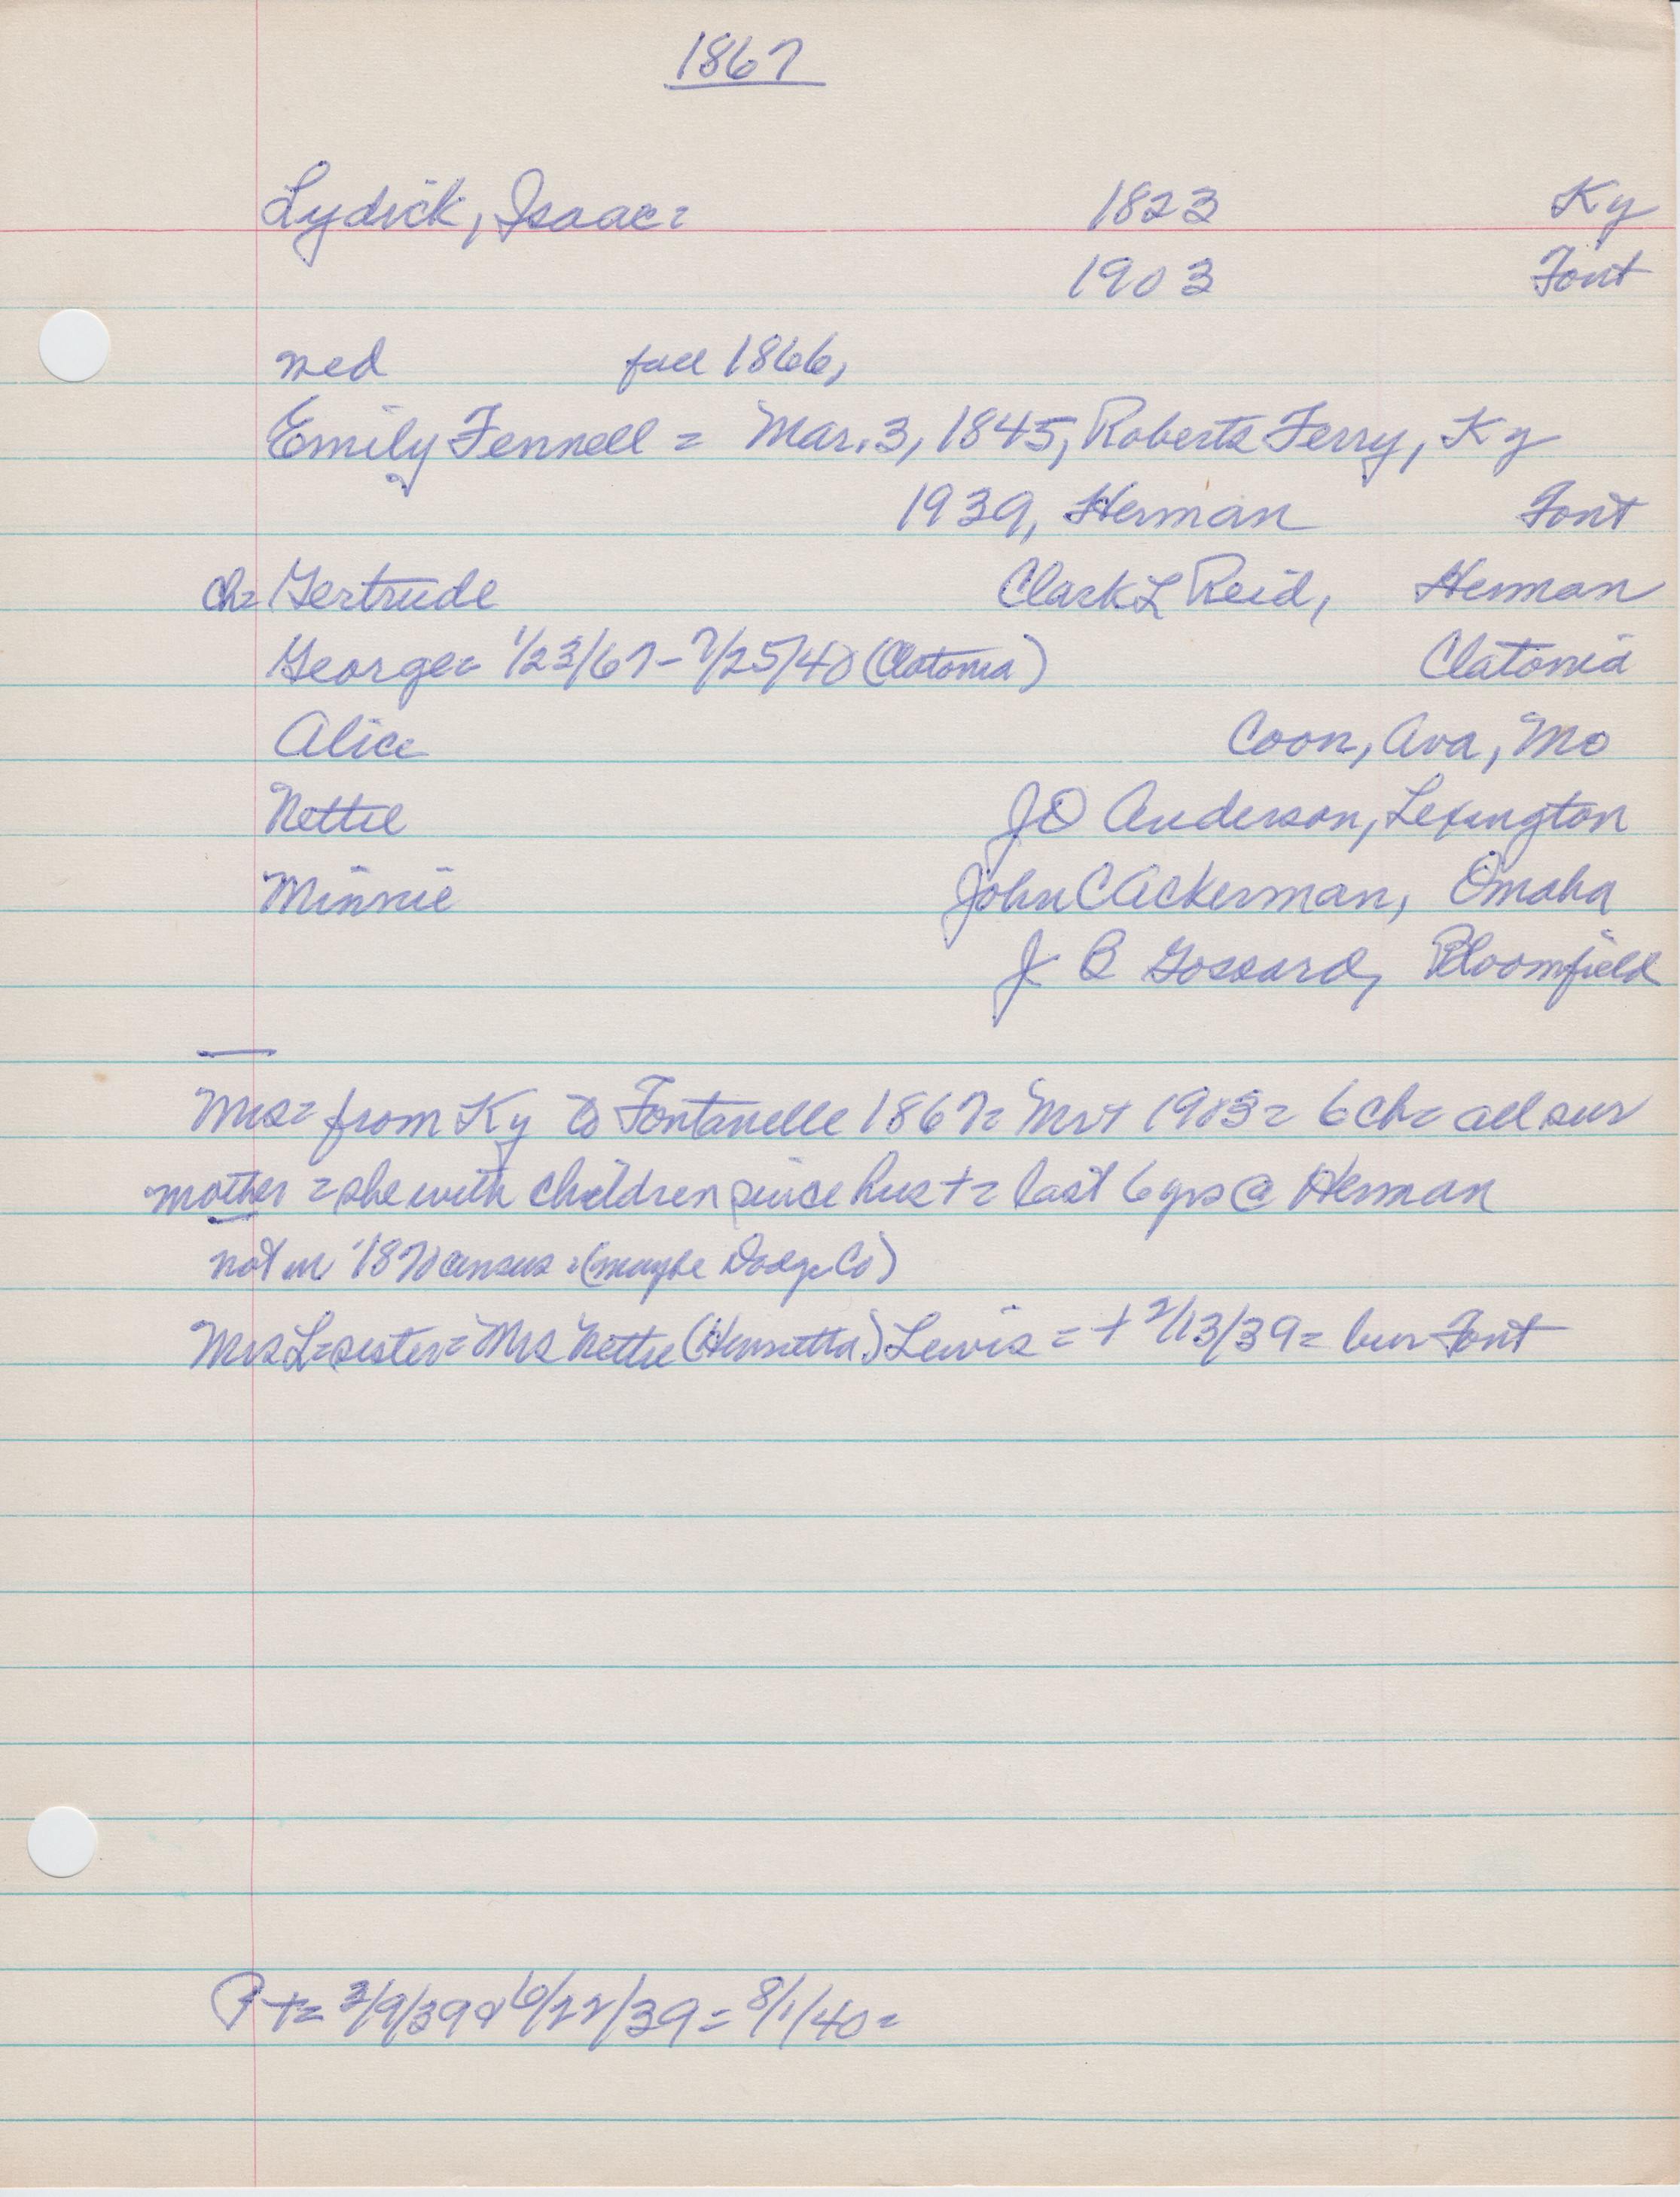 1867
Lydick, Isaac= 1823 Ky
1903 Font
med fall 1866,
Emily Fennell = Mar. 3, 1845, Roberts Ferry, Ky
1939, Herman Font
ch= Gertrude Clark L Reid, Herman
George= 1/23/67-7/25/40 (Clatonia) Clatonia
Alice Coon, Ava, Mo
Nettie JO Anderson, Lexington
Minnie John C Ackerman, Omaha
J B Gossard, Bloomfield
Mrs= from Ky to Fontanelle 1867= Mr + 1903= 6 ch= all sur
mother = she with children since hus += last 6 yrs @ Herman
not in 1870 census = (maybe Dodge Co)
Mrs L=sister= Mrs Nettie (Henrietta) Lewis = + 2/13/39= bur Font
P += 3/9/39 & 6/22/39= 8/1/40=